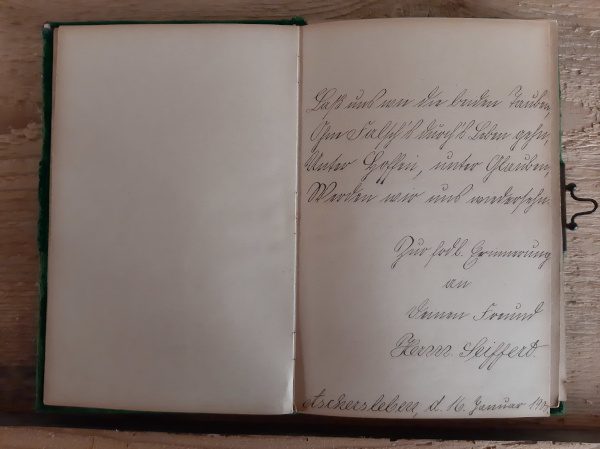 Laß uns wie die beiden Tauben,
Ohn Falsch's durch's Leben gehn,
Unter Hoffen, unter Glauben,
Werden wir uns wiedersehn.
Zur frdl. Erinnerung
an
Deinen Freund
Herm. Seiffert.
Aschersleben, d. 16. Januar